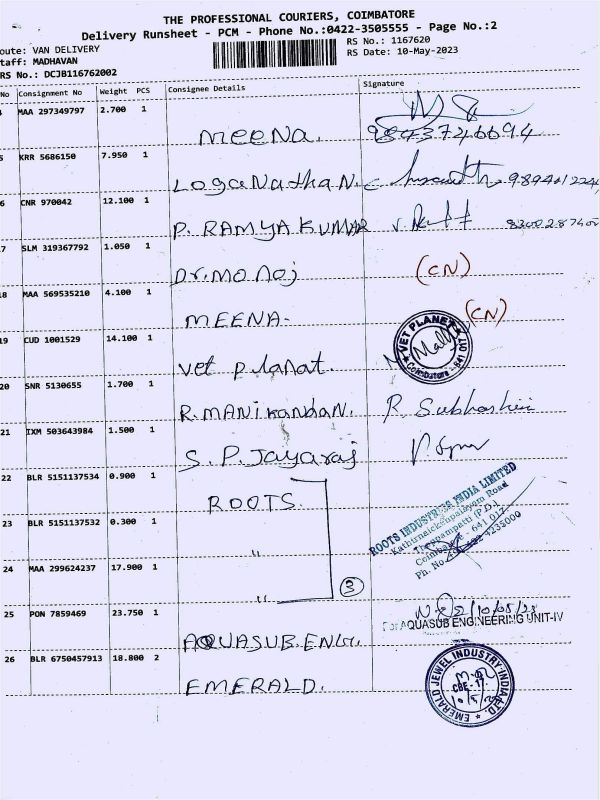 THE PROFESSIONAL COURIERS, COIMBATORE
Delivery Runsheet - PCM - Phone No.:0422-3505555 - Page No.:2
oute: VAN DELIVERY
taff: MADHAVAN
RS No.: DCJB116762002
RS No.: 1167620
RS Date: 10-May-2023
No Consignment No Weight PCS Consignee Details Signature
MAA 297349797 2.700 1
MeeNa. 9843746694
KRR 5686150 7.950 1
LogaNathaN.
CNR 970042 12.100 1
P. RAMYA KUMAR
SLM 319367792 1.050 1
Dr.Manoj (CN)
18 MAA 569535210 4.100 1
MEENA- (CN)
19 CUD 1001529 14.100 1
Vet Planat.
VET PLANET
Coimbatore
20 SNR 5130655 1.700 1
R.MANikandaN. R. Subhashini
21 IXM 503643984 1.500 1
S. P. Jayaraj
22 BLR 5151137534 0.900 1
ROOTS
ROOTS INDUSTRIES INDIA LIMITED
Kathirnaickenpalayam Road
Thoppampatti (P.O.)
Coimbatore - 641 017
Ph. No
23 BLR 5151137532 0.300 1
"
24 MAA 299624237 17.900 1
" 3
25 PON 7859469 23.750 1
10/05/23
For AQUASUB ENGINEERING UNIT-IV
AQUASUB.ENGr.
26 BLR 6750457913 18.800 2
EMERALD.
EMERALD JEWEL INDUSTRY INDIA LTD.
CBE-11.